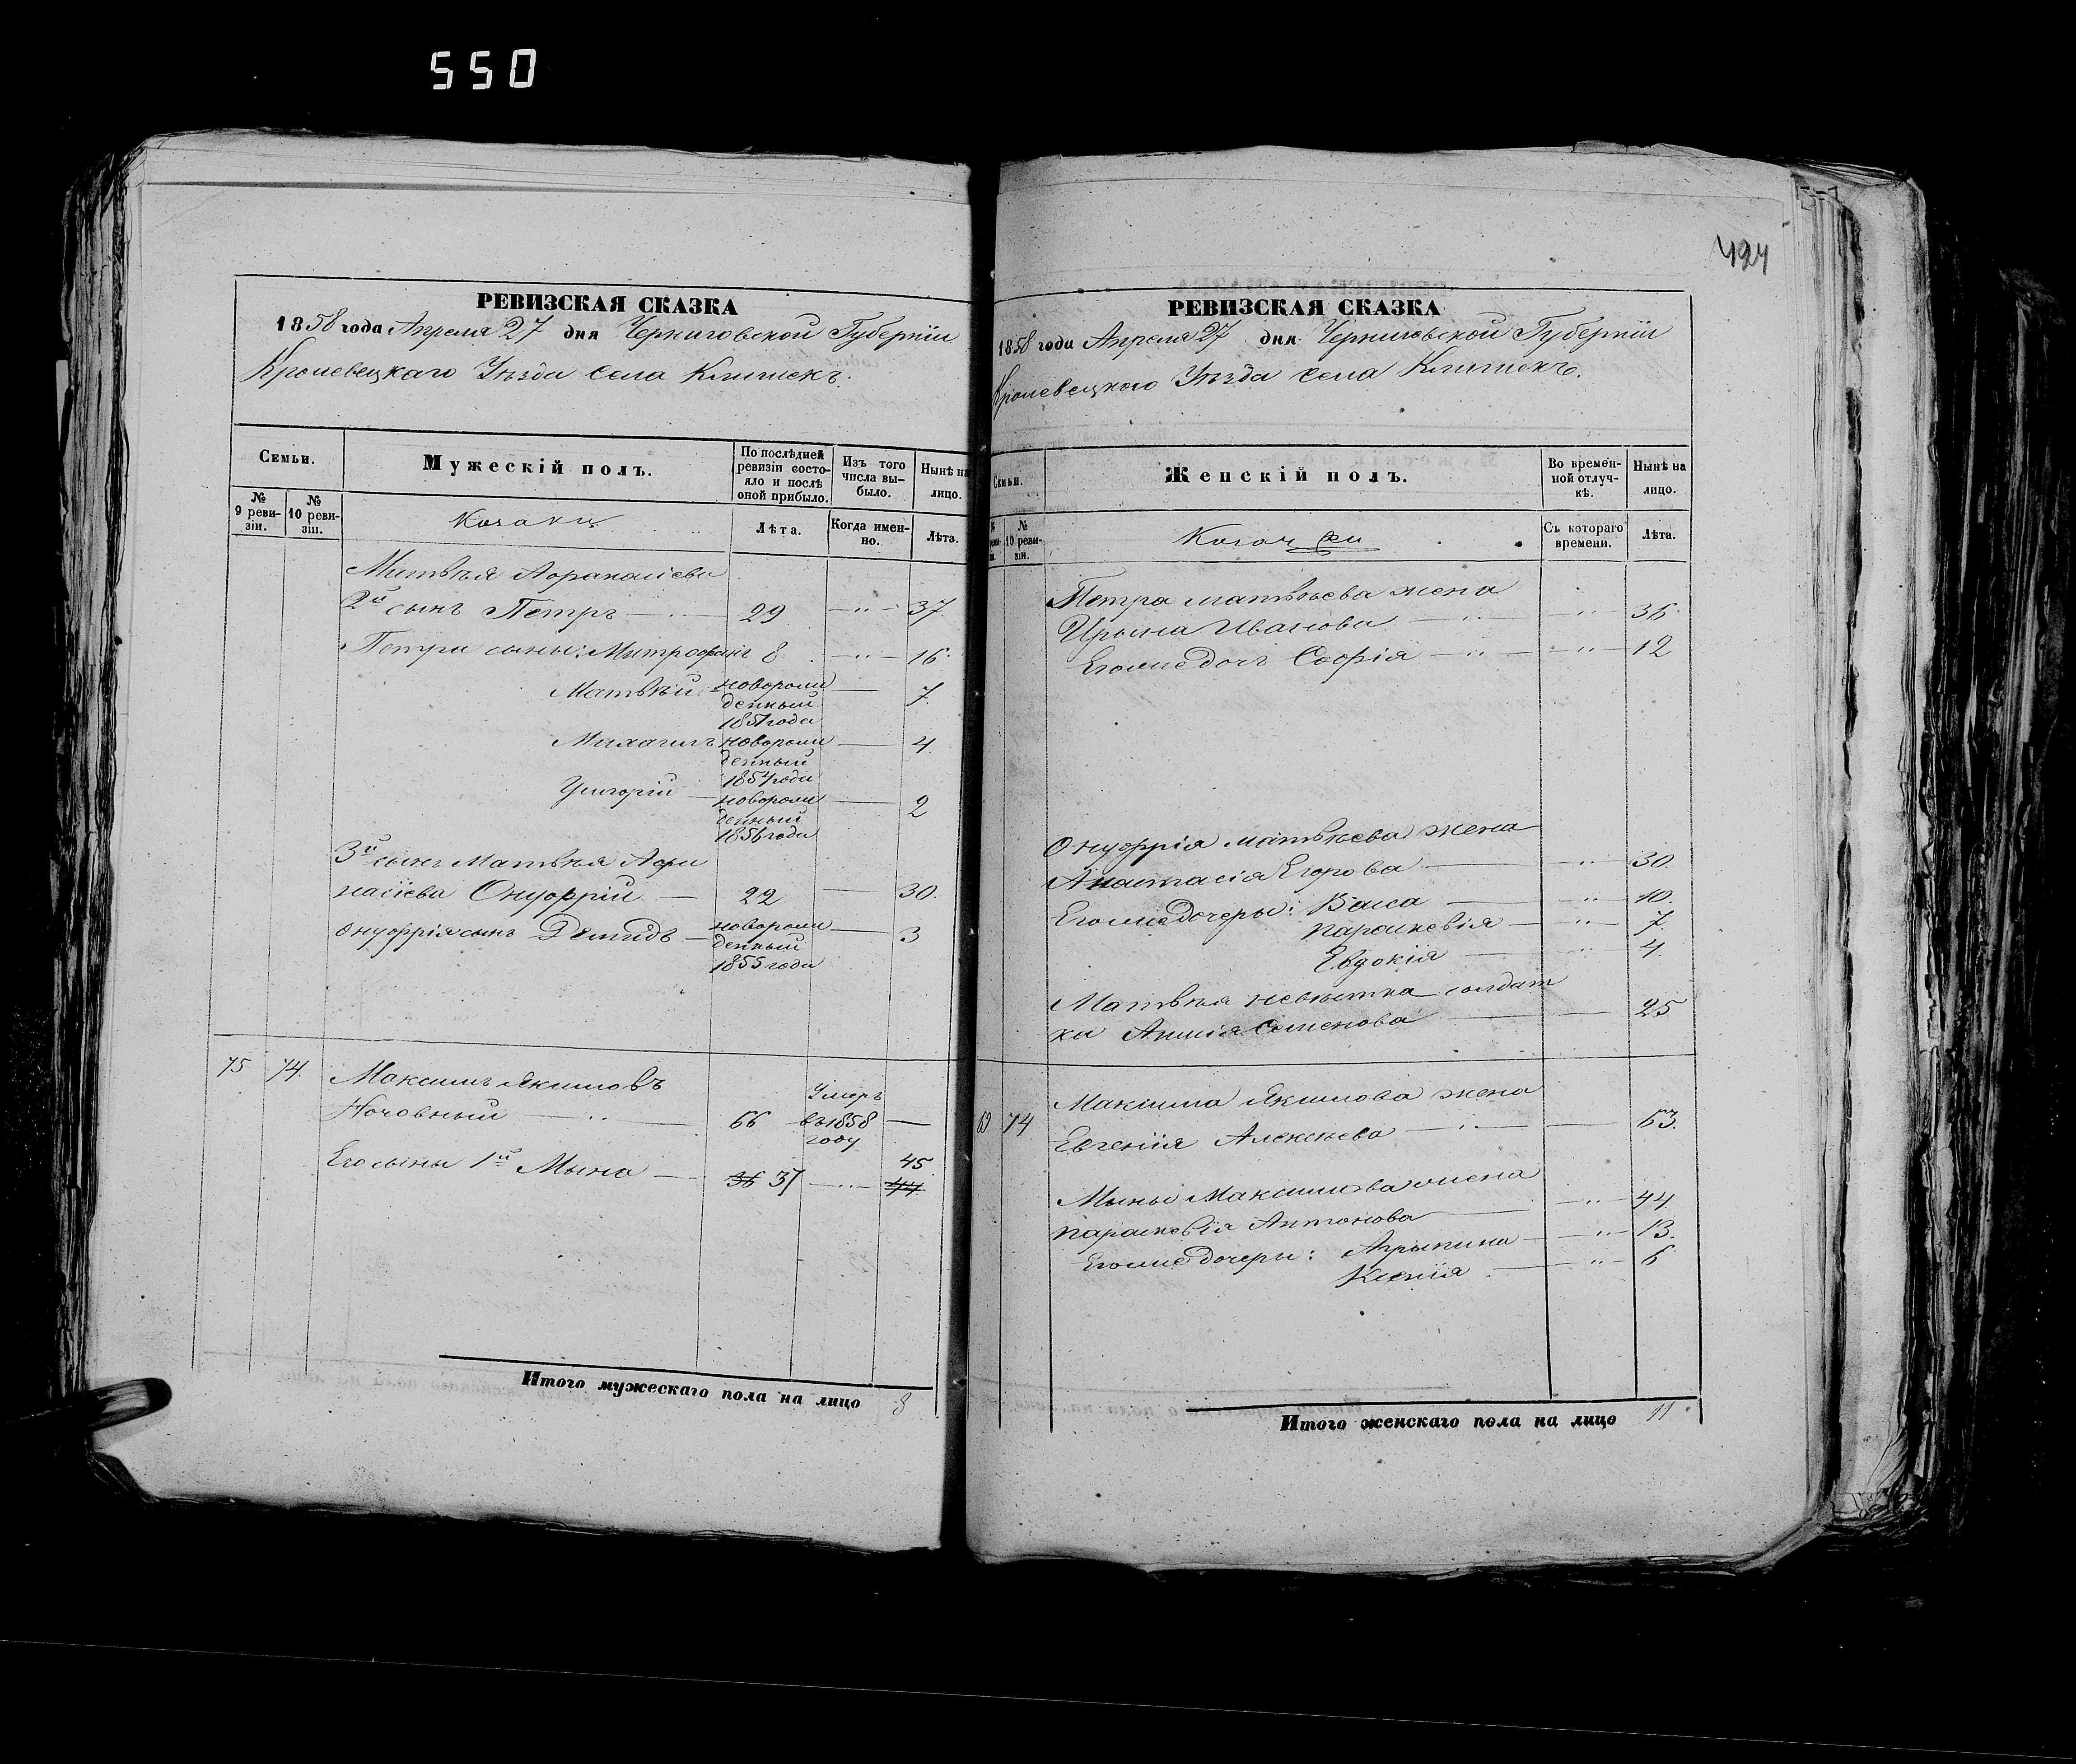 550
424
РЕВИЗСКАЯ СКАЗКА
1858 года Апреля 27 дня Черниговской Губерніи
Кролевецкаго Уѣзда села Клишекъ.
Семьи.
Мужескій полъ.
По послѣдней ревизіи состояло и послѣ оной прибыло.
Изъ того числа выбыло.
Нынѣ на лицо.
№ 9 ревизіи.
№ 10 ревизіи.
Козаки
Лѣта.
Когда именно.
Лѣта.
Матвѣя Афанасіева
2й сынъ Петръ 29 37
Петра сыны: Митрофанъ 8 16
Матвѣй новорожденный 1851 года 7
Михаилъ новорожденный 1854 года 4
Григорій новорожденный 1856 года 2
3й сынъ Матвѣя Афанасіева Онуфрій 22 30
Онуфрія сынъ Демидъ новорожденный 1855 года 3
75 74 Максимъ Якимовъ
Ночовный 66 Умеръ въ 1858 году
Его сыны 1й Мына 36 37 45 44
Итого мужескаго пола на лицо 8
РЕВИЗСКАЯ СКАЗКА
1858 года Апреля 27 дня Черниговской Губерніи
Кролевецкаго Уѣзда села Клишекъ.
Семьи.
Женскій полъ.
Во временной отлучкѣ.
Нынѣ на лицо.
№ 10 ревизіи.
Козачки
Съ котораго времени.
Лѣта.
Петра Матвѣева жена
Ирына Иванова 36
Его же дочь Софія 12
Онуфрія Матвѣева жена
Анастасія Егорова 30
Его же дочеры: Васа 10
Параскевія 7
Евдокія 4
Матвѣя невѣстка солдатка Анна Семенова 25
69 74 Максима Якимова жена
Евгенія Алексѣева 63
Мыны Максимова жена
Параскевія Антонова 44
Его же дочеры: Агрыпина 13
Ксенія 6
Итого женскаго пола на лицо 11